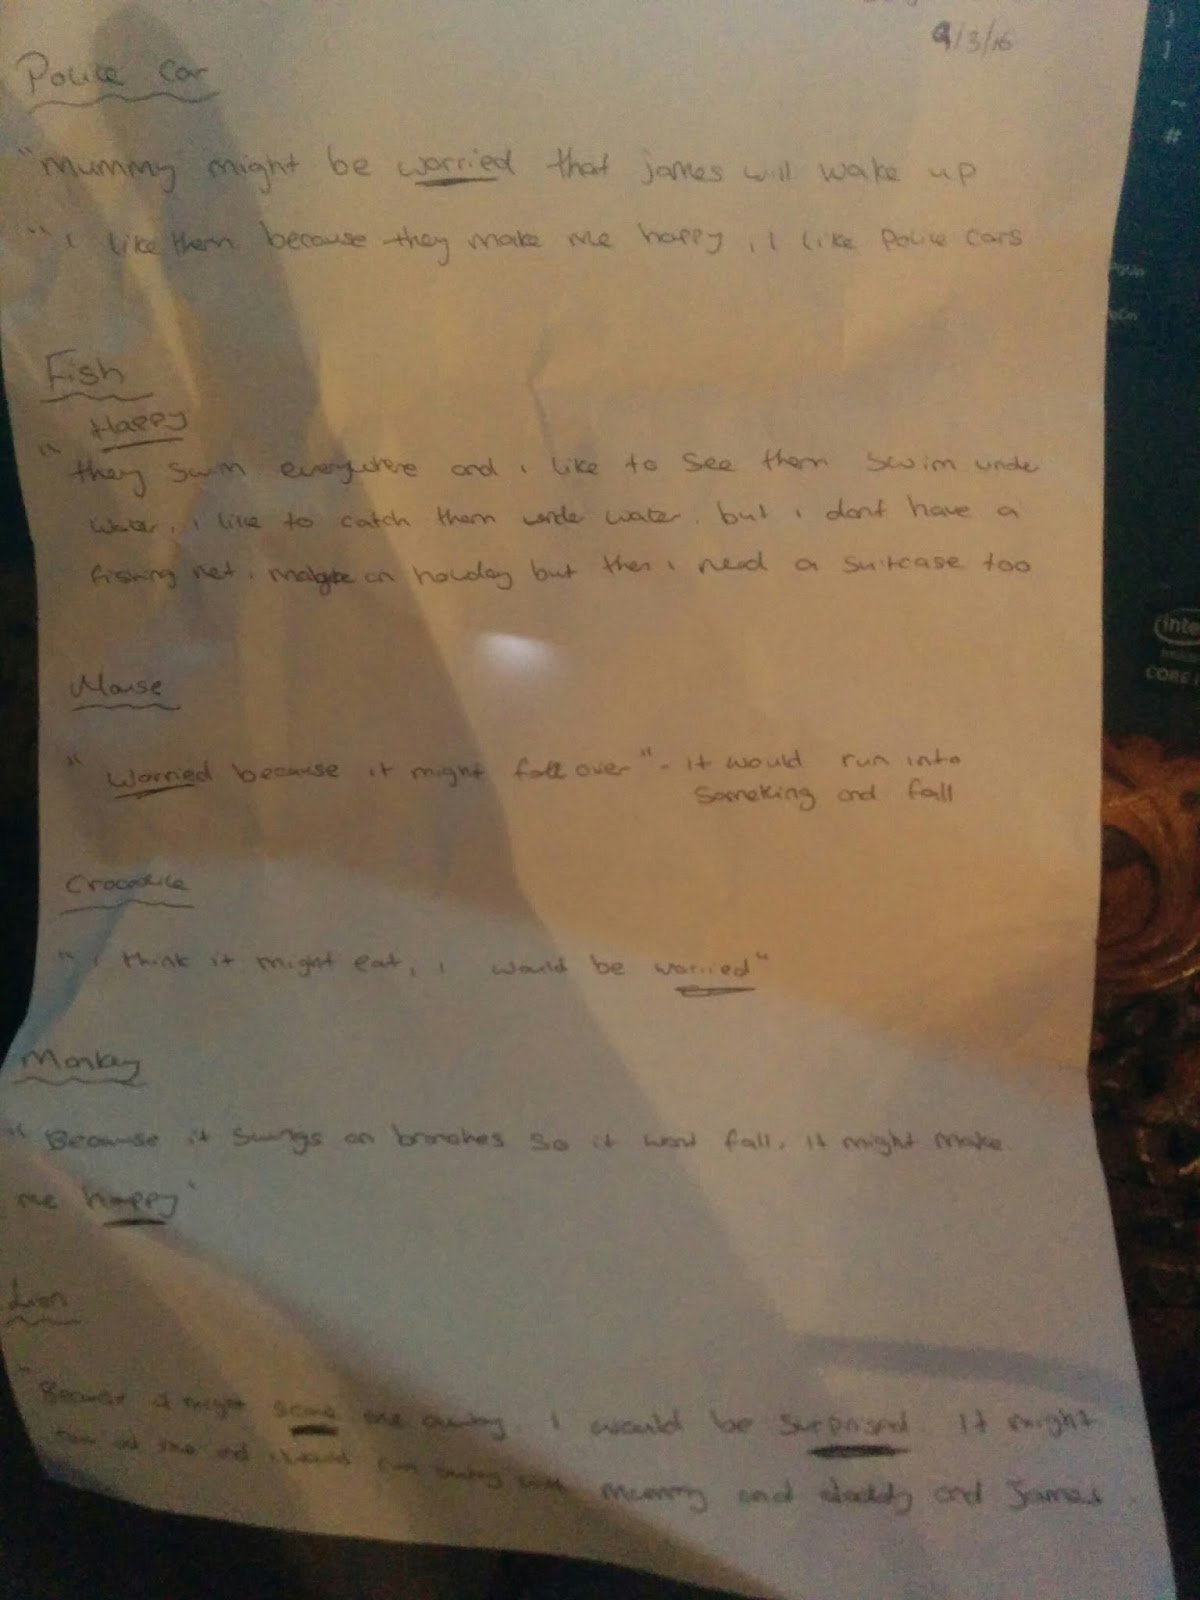 9/3/16
Police Car
"Mummy might be worried that james will wake up
"i like them because they make me happy, i like Police cars
Fish
Happy
"they swim everywhere and i like to see them swim unde
water. i like to catch them unde water. but i dont have a
fishing net. maybe on holiday but then i need a suitcase too
Mouse
"Worried because it might fall over" - it would run into
Something and fall
Crocodile
"i think it might eat, i would be worried"
Monkey
"Because it swings on branches so it wont fall. it might make
me happy"
Lion
"Because it might scare me away. I would be surprised. It might
run at me and i would run away with mummy and daddy and James
~
#
inte
CORE i